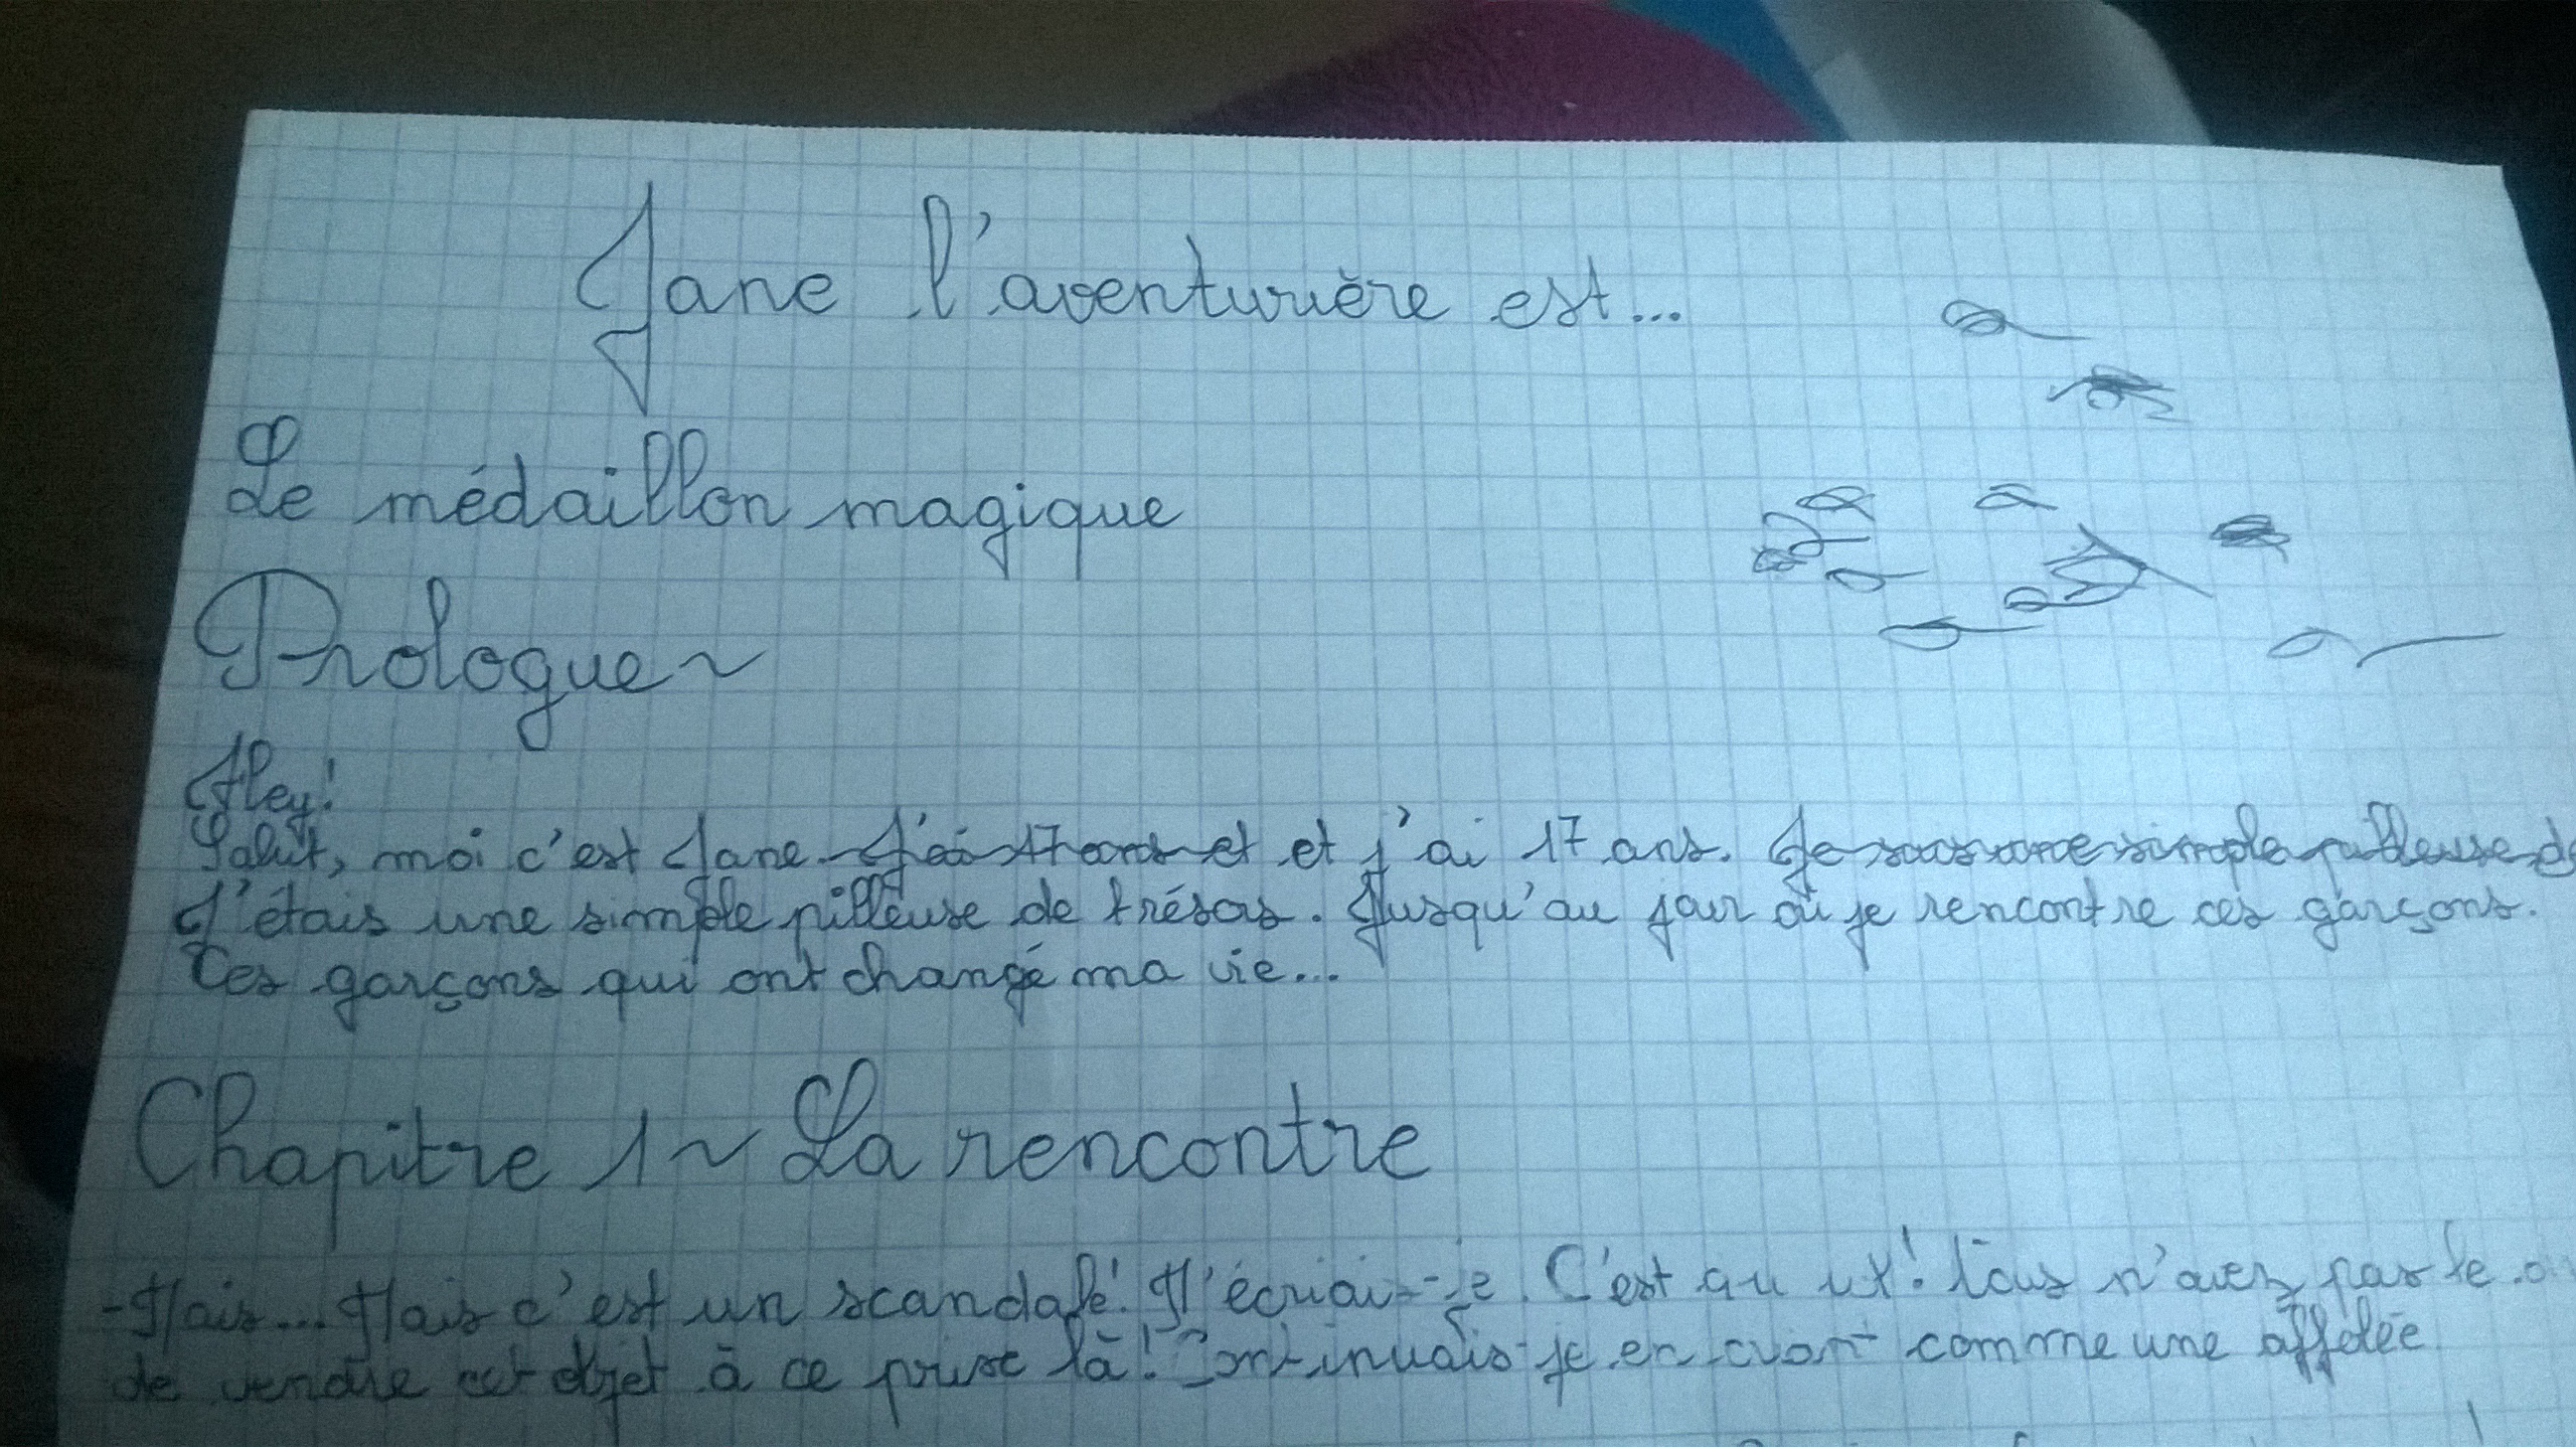 Jane l'aventurière est...
Le médaillon magique
Prologue ~
Hey!
Salut, moi c'est Jane. J'ai 17 ans et et j'ai 17 ans. Je suis une simple pilleuse de
J'étais une simple pilleuse de trésors. Jusqu'au jour où je rencontre ces garçons.
Ces garçons qui ont changé ma vie...
Chapitre 1 ~ La rencontre
-Mais... Mais c'est un scandale! M'écriai-je. C'est Vous n'avez pas le
de vendre cet objet à ce prix là! Continuais-je en criant comme une affolée